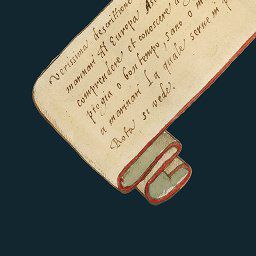 Verissima descrittione
marinari d'Europa
comprendere et conoscere
pioggia o bon tempo, sano o
a marinari. La quale serue
Rota si vede.